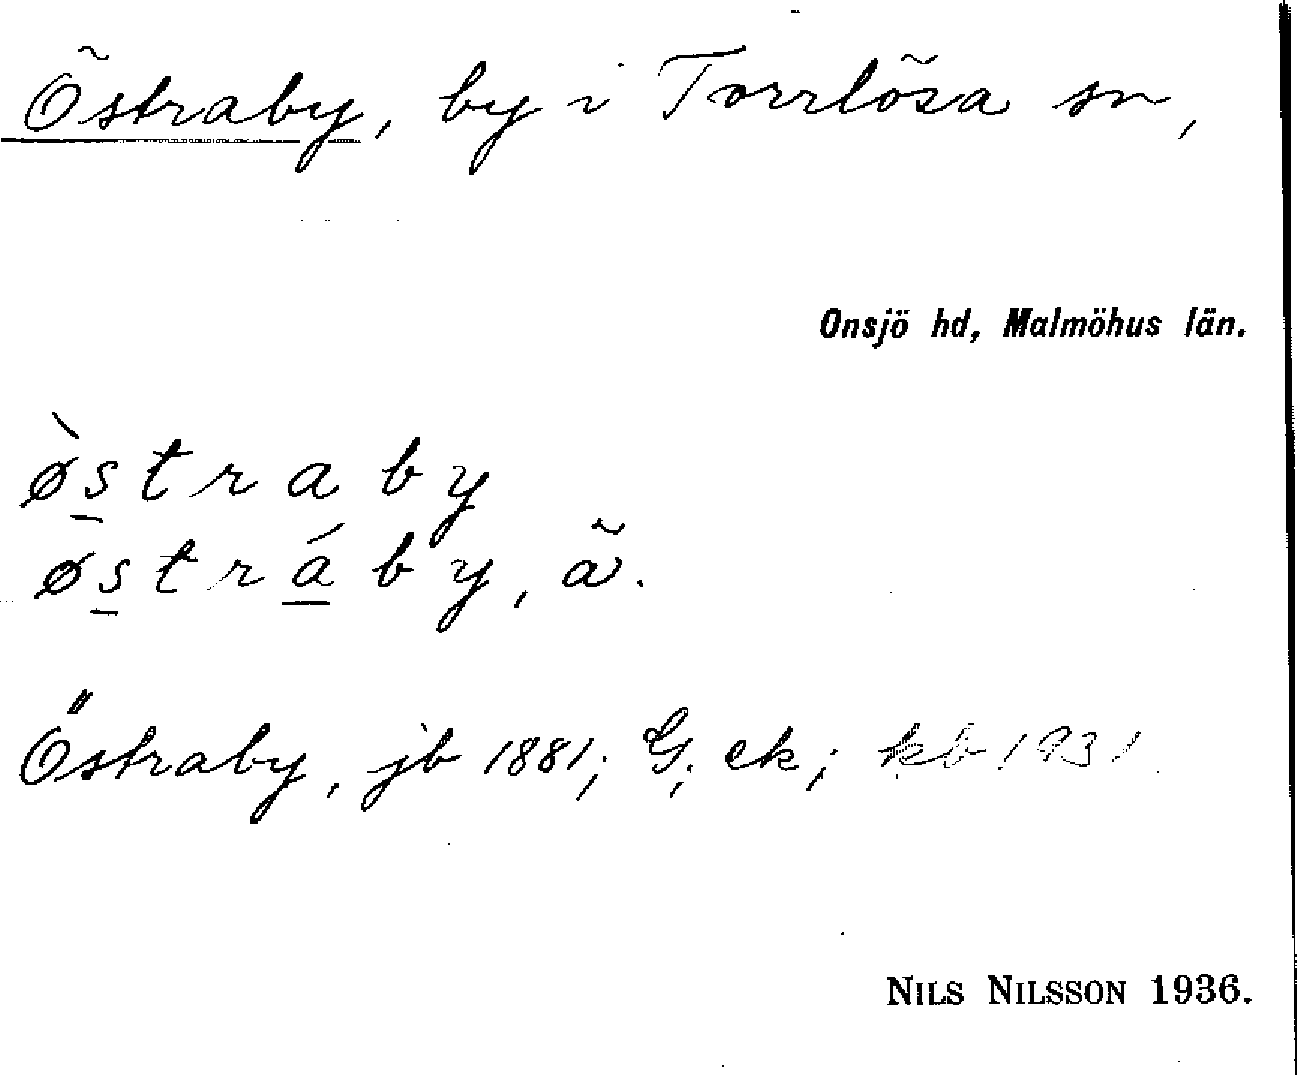 Östraby, by i Torrlösa sn,
Onsjö hd, Malmöhus län.
ø̀s̱traby
øs̱trá̱by, ä.
Östraby, jb 1881; G. ek; kb 1931.
NILS NILSSON 1936.